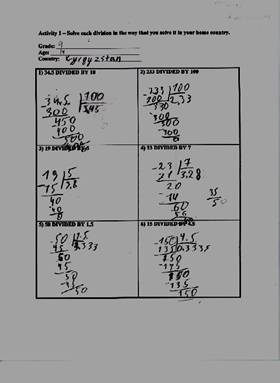 Activity 1 – Solve each division in the way that you solve it in your home country.
Grade: 9
Age:
Country: Kyrgyzstan
1) 34.5 DIVIDED BY 10
2) 233 DIVIDED BY 100
-34.5 | 100
300 | 3.45
450
400
500
-233 | 100
200 | 2.33
330
300
300
300
0
3) 19 DIVIDED BY 5
4) 23 DIVIDED BY 7
19 | 5
-15 | 3.8
40
40
0
-23 | 7
21 | 3.28
20
14
60
35
50
5) 50 DIVIDED BY 1.5
6) 15 DIVIDED BY 4.5
50 | 1.5
45
50
45
50
45
50
-150 | 4.5
135
150
135
150